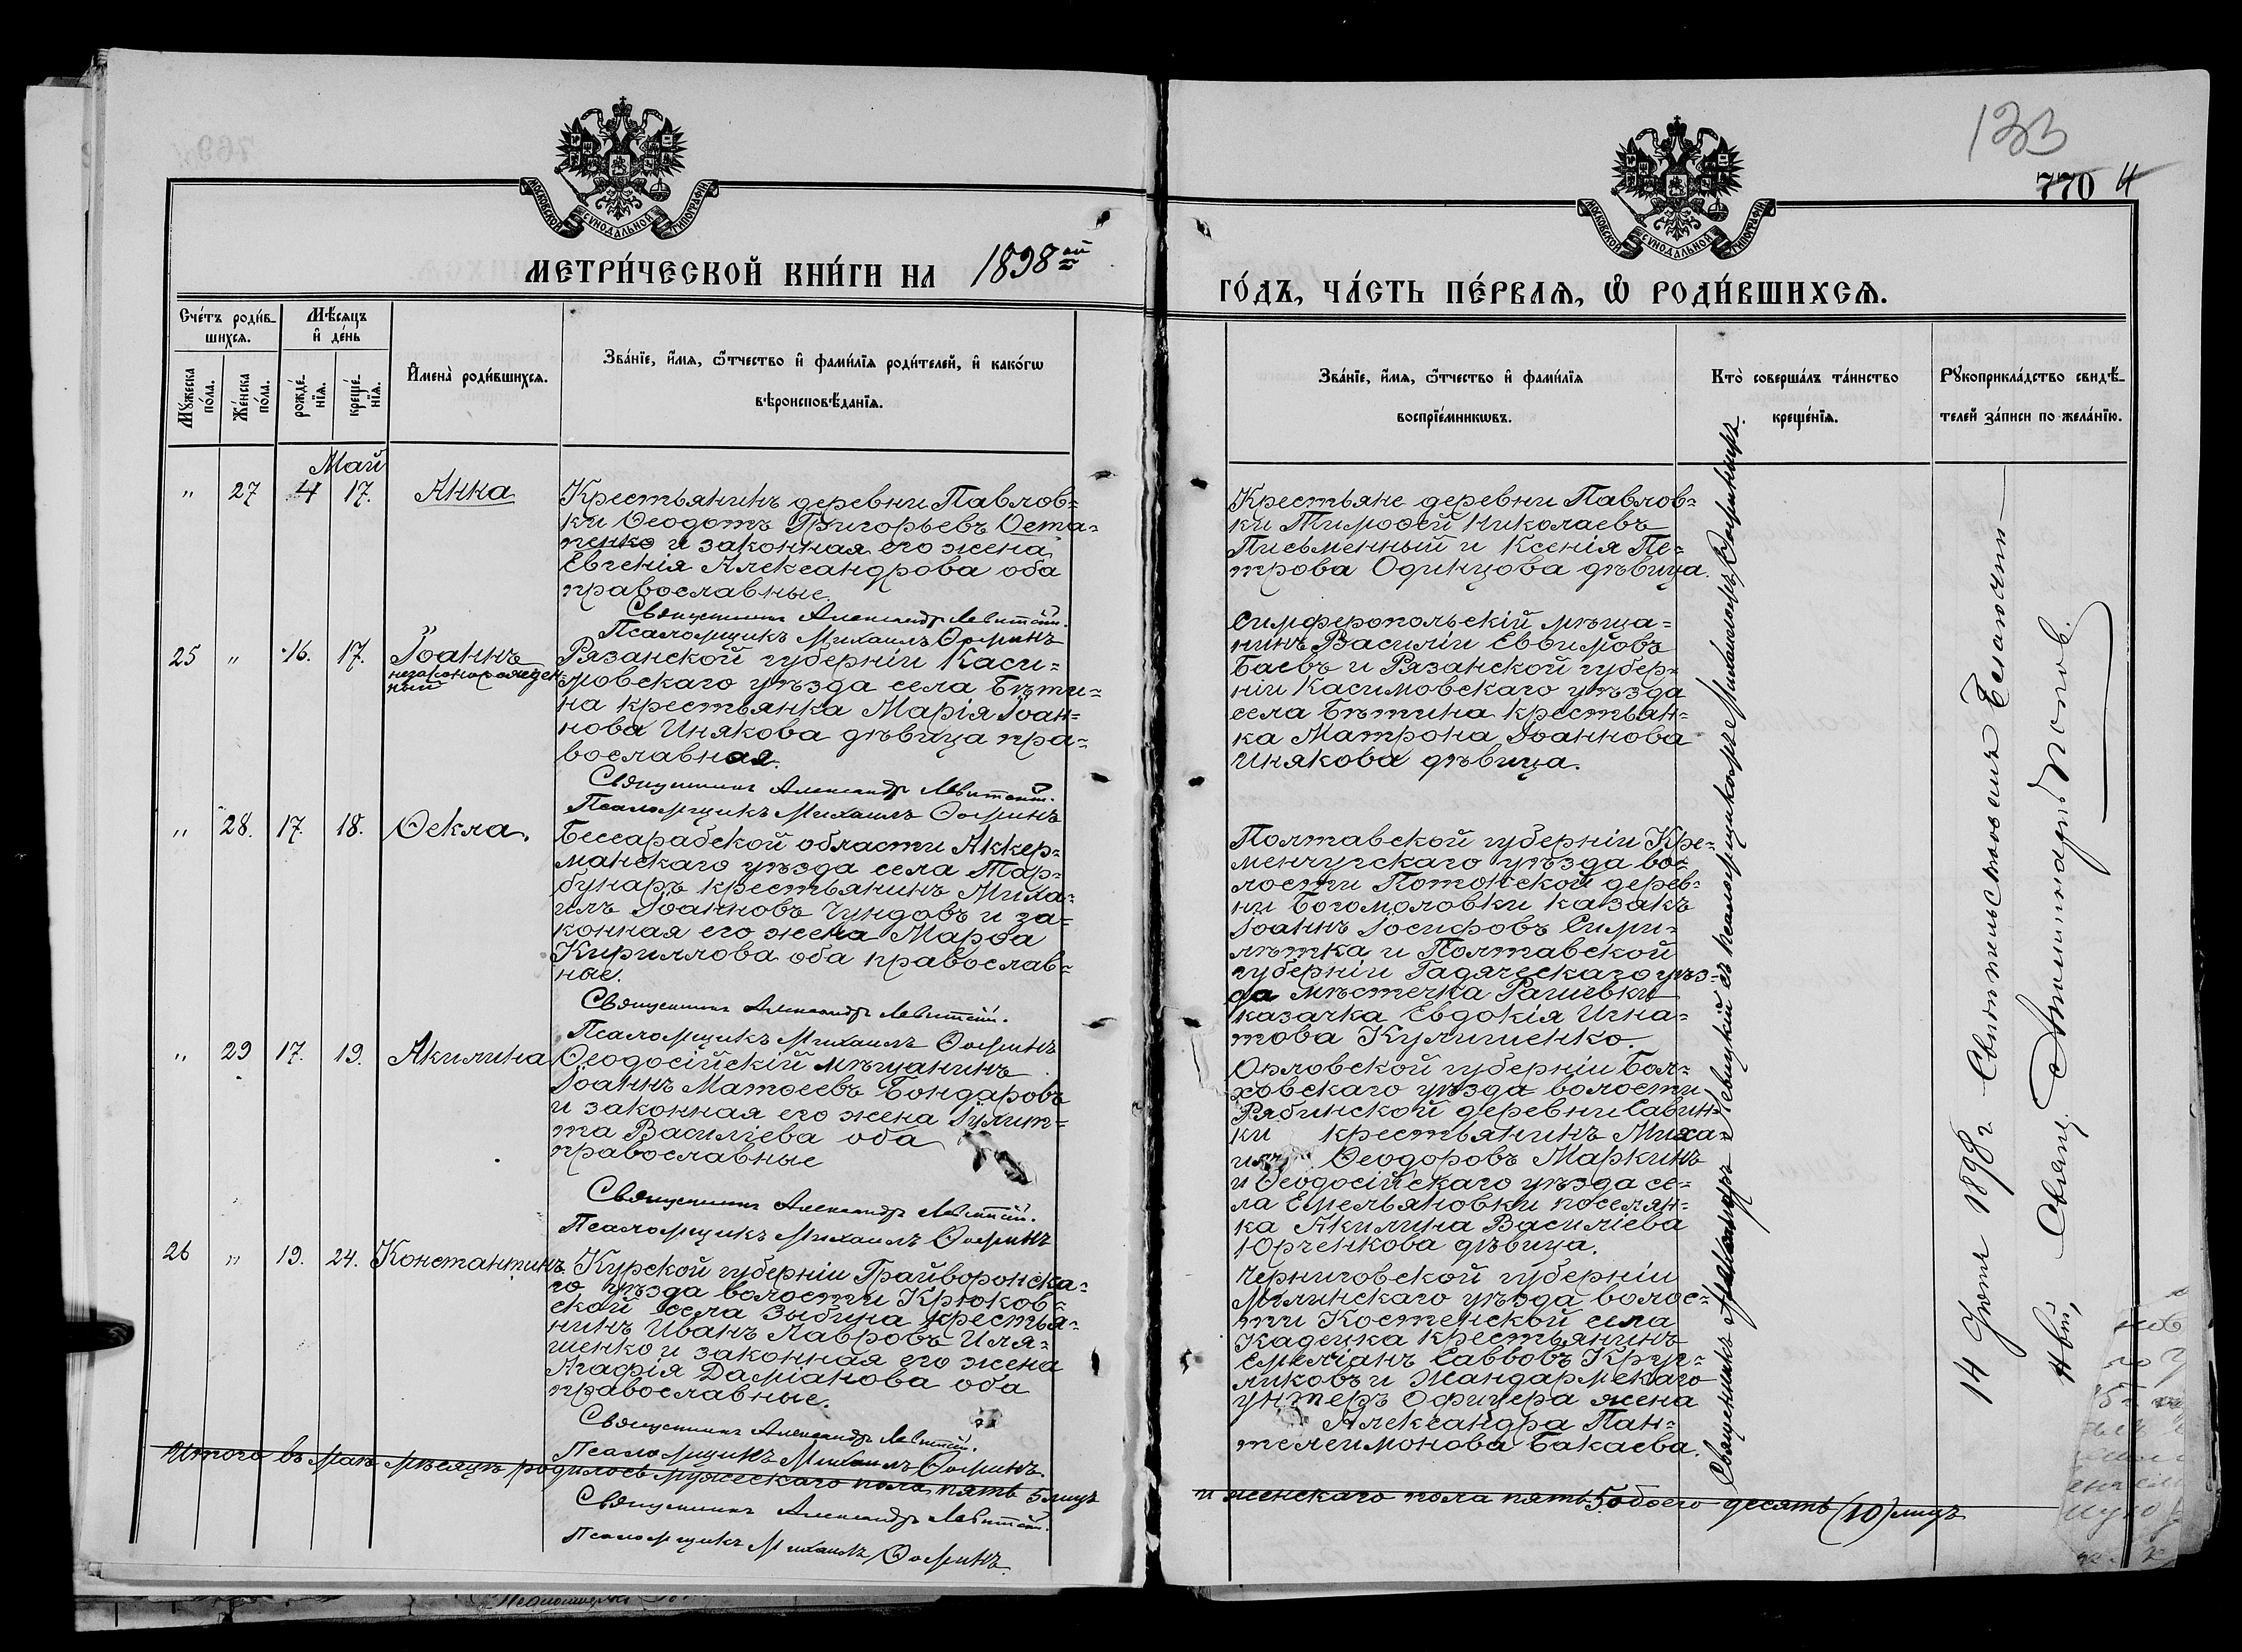 133
770
МОСКОВСКОЙ СѴНОДАЛЬНОЙ ТИПОГРАФІИ
МОСКОВСКОЙ СѴНОДАЛЬНОЙ ТИПОГРАФІИ
МЕТРИ́ЧЕСКОЙ КНИ́ГИ НА 1898 ой
ГО́ДЪ, ЧА́СТЬ ПЕ́РВАѦ, Ѽ РОДИ́ВШИХСѦ.
Сче́тъ роди́в-
шихсѧ.
Мѣ́сѧцъ
и҆ де́нь
Мꙋ́жеска
по́ла.
Же́нска
по́ла.
рожде́-
нїѧ.
креще́-
нїѧ.
И҆мена̀ роди́вшихсѧ.
Зва́нїе, и҆́мѧ, ѻ҆́тчество и҆ фами́лїѧ роди́телей, и҆ како́гѡ
вѣроисповѣ́данїѧ.
Зва́нїе, и҆́мѧ, ѻ҆́тчество и҆ фами́лїѧ
воспрїе́мникѡвъ.
Кто̀ соверша́лъ та́инство
креще́нїѧ.
Рꙋкоприкла́дство свидѣ́-
телей за́писи по жела́нїю.
Май
" 27 4 17. Анна
Крестьянинъ деревни Павлов=
ки Ѳеодотъ Григорьевъ Оста=
пенко и законная его жена
Евгенія Александрова оба
православные.
Священникъ Александръ Левитскій.
Псаломщикъ Михаилъ Ѳоминъ
Крестьяне деревни Павлов=
ки Тимоѳей Николаевъ
Письменный и Ксенія Пе=
трова Одинцова дѣвица.
25 " 16. 17. Іоаннъ
незаконорожден
ный
Рязанской губерніи Каси=
мовскаго уѣзда села Бѣти=
на крестьянка Марія Іоан=
нова Инякова дѣвица пра=
вославная.
Священникъ Александръ Левитскій.
Псаломщикъ Михаилъ Ѳоминъ
Симферопольскій мѣща=
нинъ Василій Евѳимовъ
Баевъ и Рязанской губер=
ніи Касимовскаго уѣзда
села Бѣтина крестьян=
ка Матрона Іоаннова
Инякова дѣвица.
" 28. 17. 18. Ѳекла.
Бессарабской области Аккер=
манскаго уѣзда села Тар=
бунаръ крестьянинъ Миха=
илъ Іоанновъ Чундовъ и за=
конная его жена Марѳа
Кириллова оба православ=
ные.
Священникъ Александръ Левитскій.
Псаломщикъ Михаилъ Ѳоминъ
Полтавской губерніи Кре=
менчугскаго уѣзда во=
лости Потокской дерев=
ни Богомоловки казакъ
Іоаннъ Іосифовъ Сими=
лѣтка и Полтавской
губерніи Гадяческаго уѣз=
да мѣстечка Рашевки
казачка Евдокія Игна=
това Кулишенко.
" 29 17. 19. Акилина
Ѳеодосійскій мѣщанинъ
Іоаннъ Матѳеевъ Бондаровъ
и законная его жена Іулит=
та Василіева оба
православные
Священникъ Александръ Левитскій.
Псаломщикъ Михаилъ Ѳоминъ
Орловской губерніи Бол=
ховскаго уѣзда волости
Рябинской деревни Савин=
ки крестьянинъ Миха=
илъ Ѳеодоровъ Маркинъ
и Ѳеодосійскаго уѣзда се=
ла Емельяновки поселян=
ка Акилина Василіева
Юрченкова дѣвица.
26 " 19. 24. Константинъ.
Курской губерніи Грайворонска=
го уѣзда волости Крюков=
ской села Зыбина крестья=
нинъ Иванъ Лавровъ Иля=
шенко и законная его жена
Агафія Даміанова оба
православные.
Священникъ Александръ Левитскій.
Псаломщикъ Михаилъ Ѳоминъ.
Черниговской губерніи
Мглинскаго уѣзда волос=
ти Костенской села
Кадецка крестьянинъ
Емеліанъ Саввовъ Круг=
ликовъ и Жандармскаго
унтеръ офицера жена
Александра Пан=
телеимонова Бакаева.
Итого въ маѣ мѣсяцѣ родилось мужескаго пола пять 5 лицъ
и женскаго пола пять 5 обоего десять (10) лицъ
Священникъ Александръ Левитскій.
Псаломщикъ Михаилъ Ѳоминъ.
Священникъ Александръ Левицкій съ псаломщикомъ Михаиломъ Ѳоминымъ.
14 Іюня 1898 г. Свидѣтельствовалъ
Свящ. Попов.